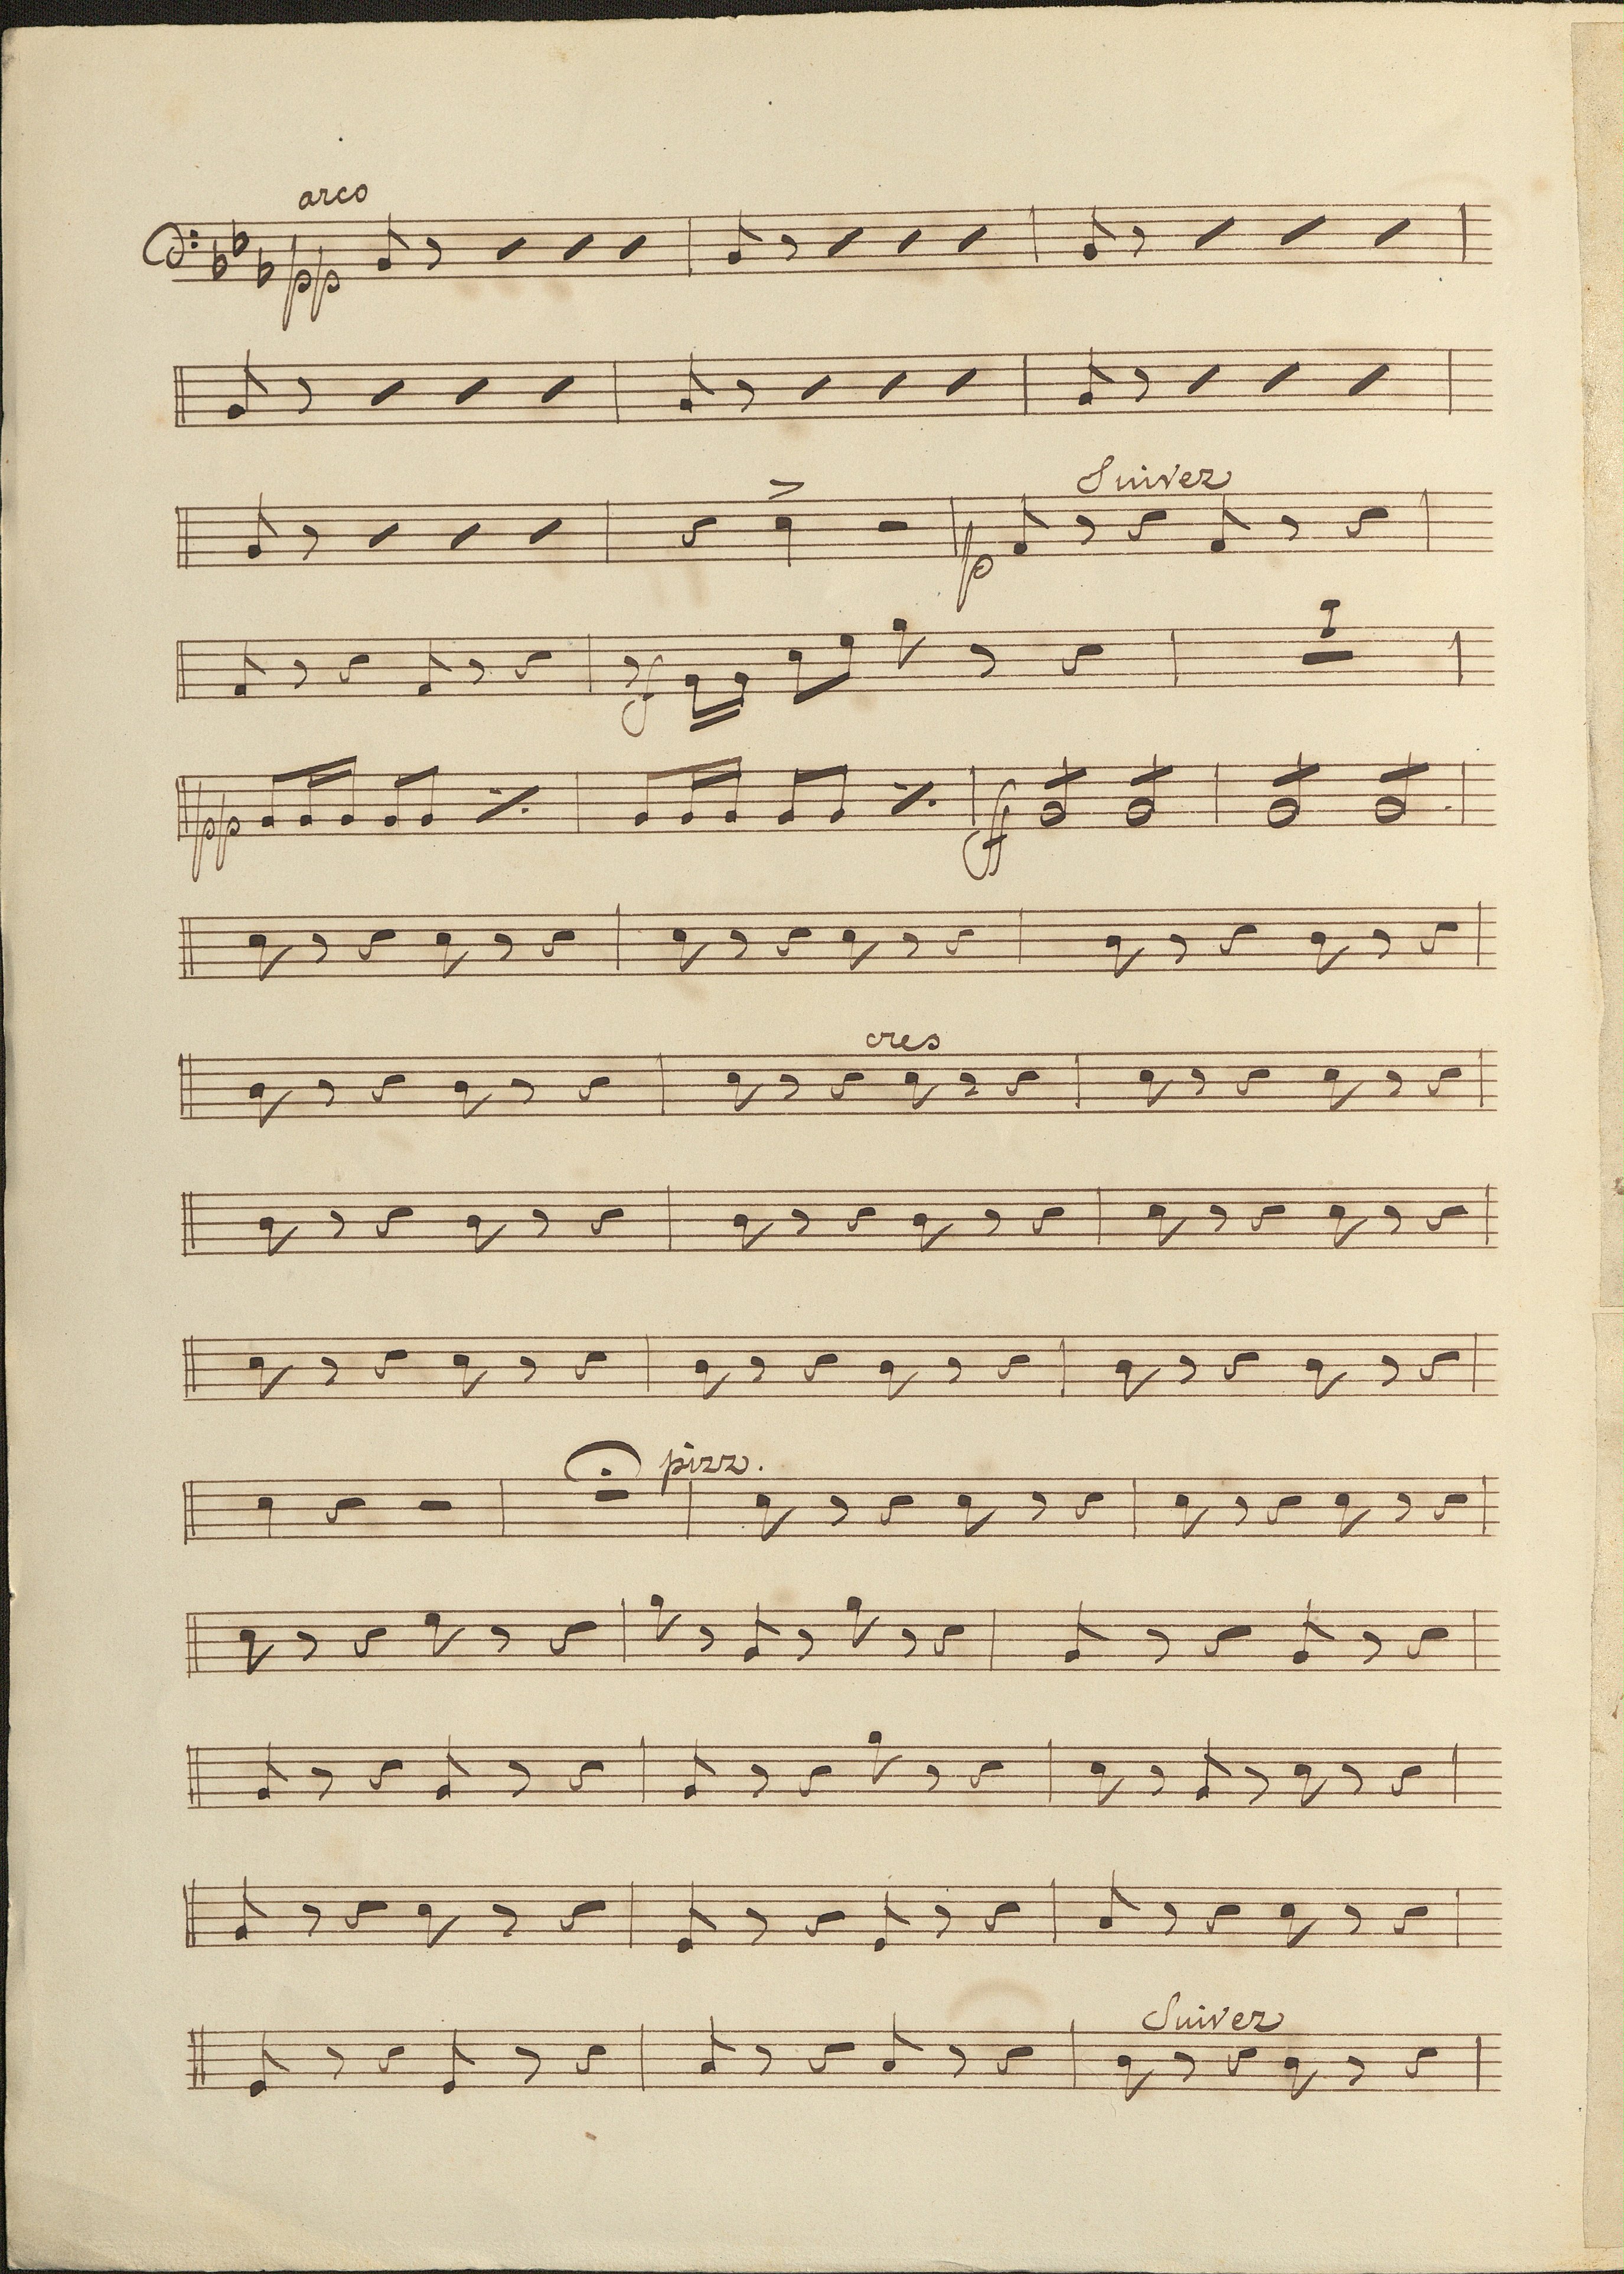 arco
pp
Suivez
p
f
1
pp
ff
cres
pizz.
Suivez